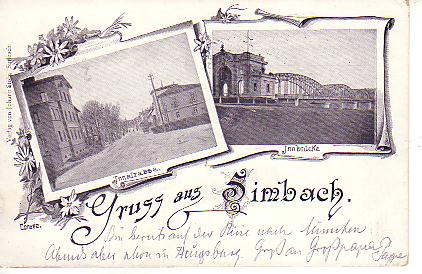 Verlag von Johann
Innstrasse.
Innbrücke
Gruss aus Simbach.
Bin bereits auf der Reise nach München.
Abends aber schon in Augsburg. Gruß an Großpapa